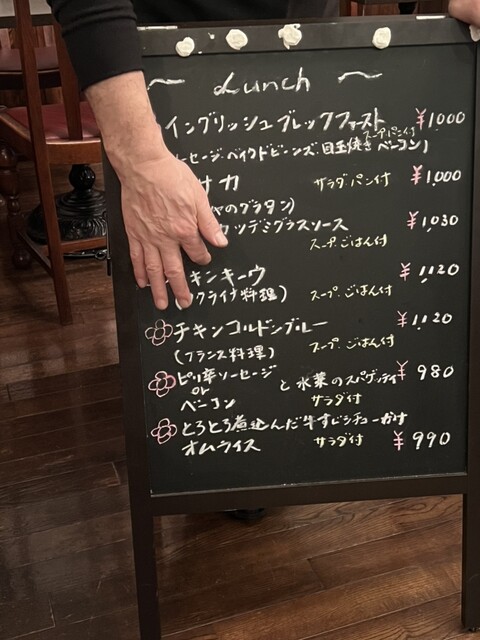 ~ Lunch ~
イングリッシュブレックファースト ¥1000
スープ.パン付
ーセージ.ベイクドビーンズ.目玉焼き.ベーコン)
サカ サラダ.パン付 ¥1,000
のグラタン)
カツデミグラスソース ¥1,030
スープ.ごはん付
キンキーウ ¥1,120
クライナ料理) スープ.ごはん付
チキンコルドンブルー ¥1,120
(フランス料理) スープ.ごはん付
ピリ辛ソーセージ
or
ベーコン
と水菜のスパゲッティ ¥980
サラダ付
とろとろ煮込んだ牛すじシチューがけ
オムライス サラダ付 ¥990